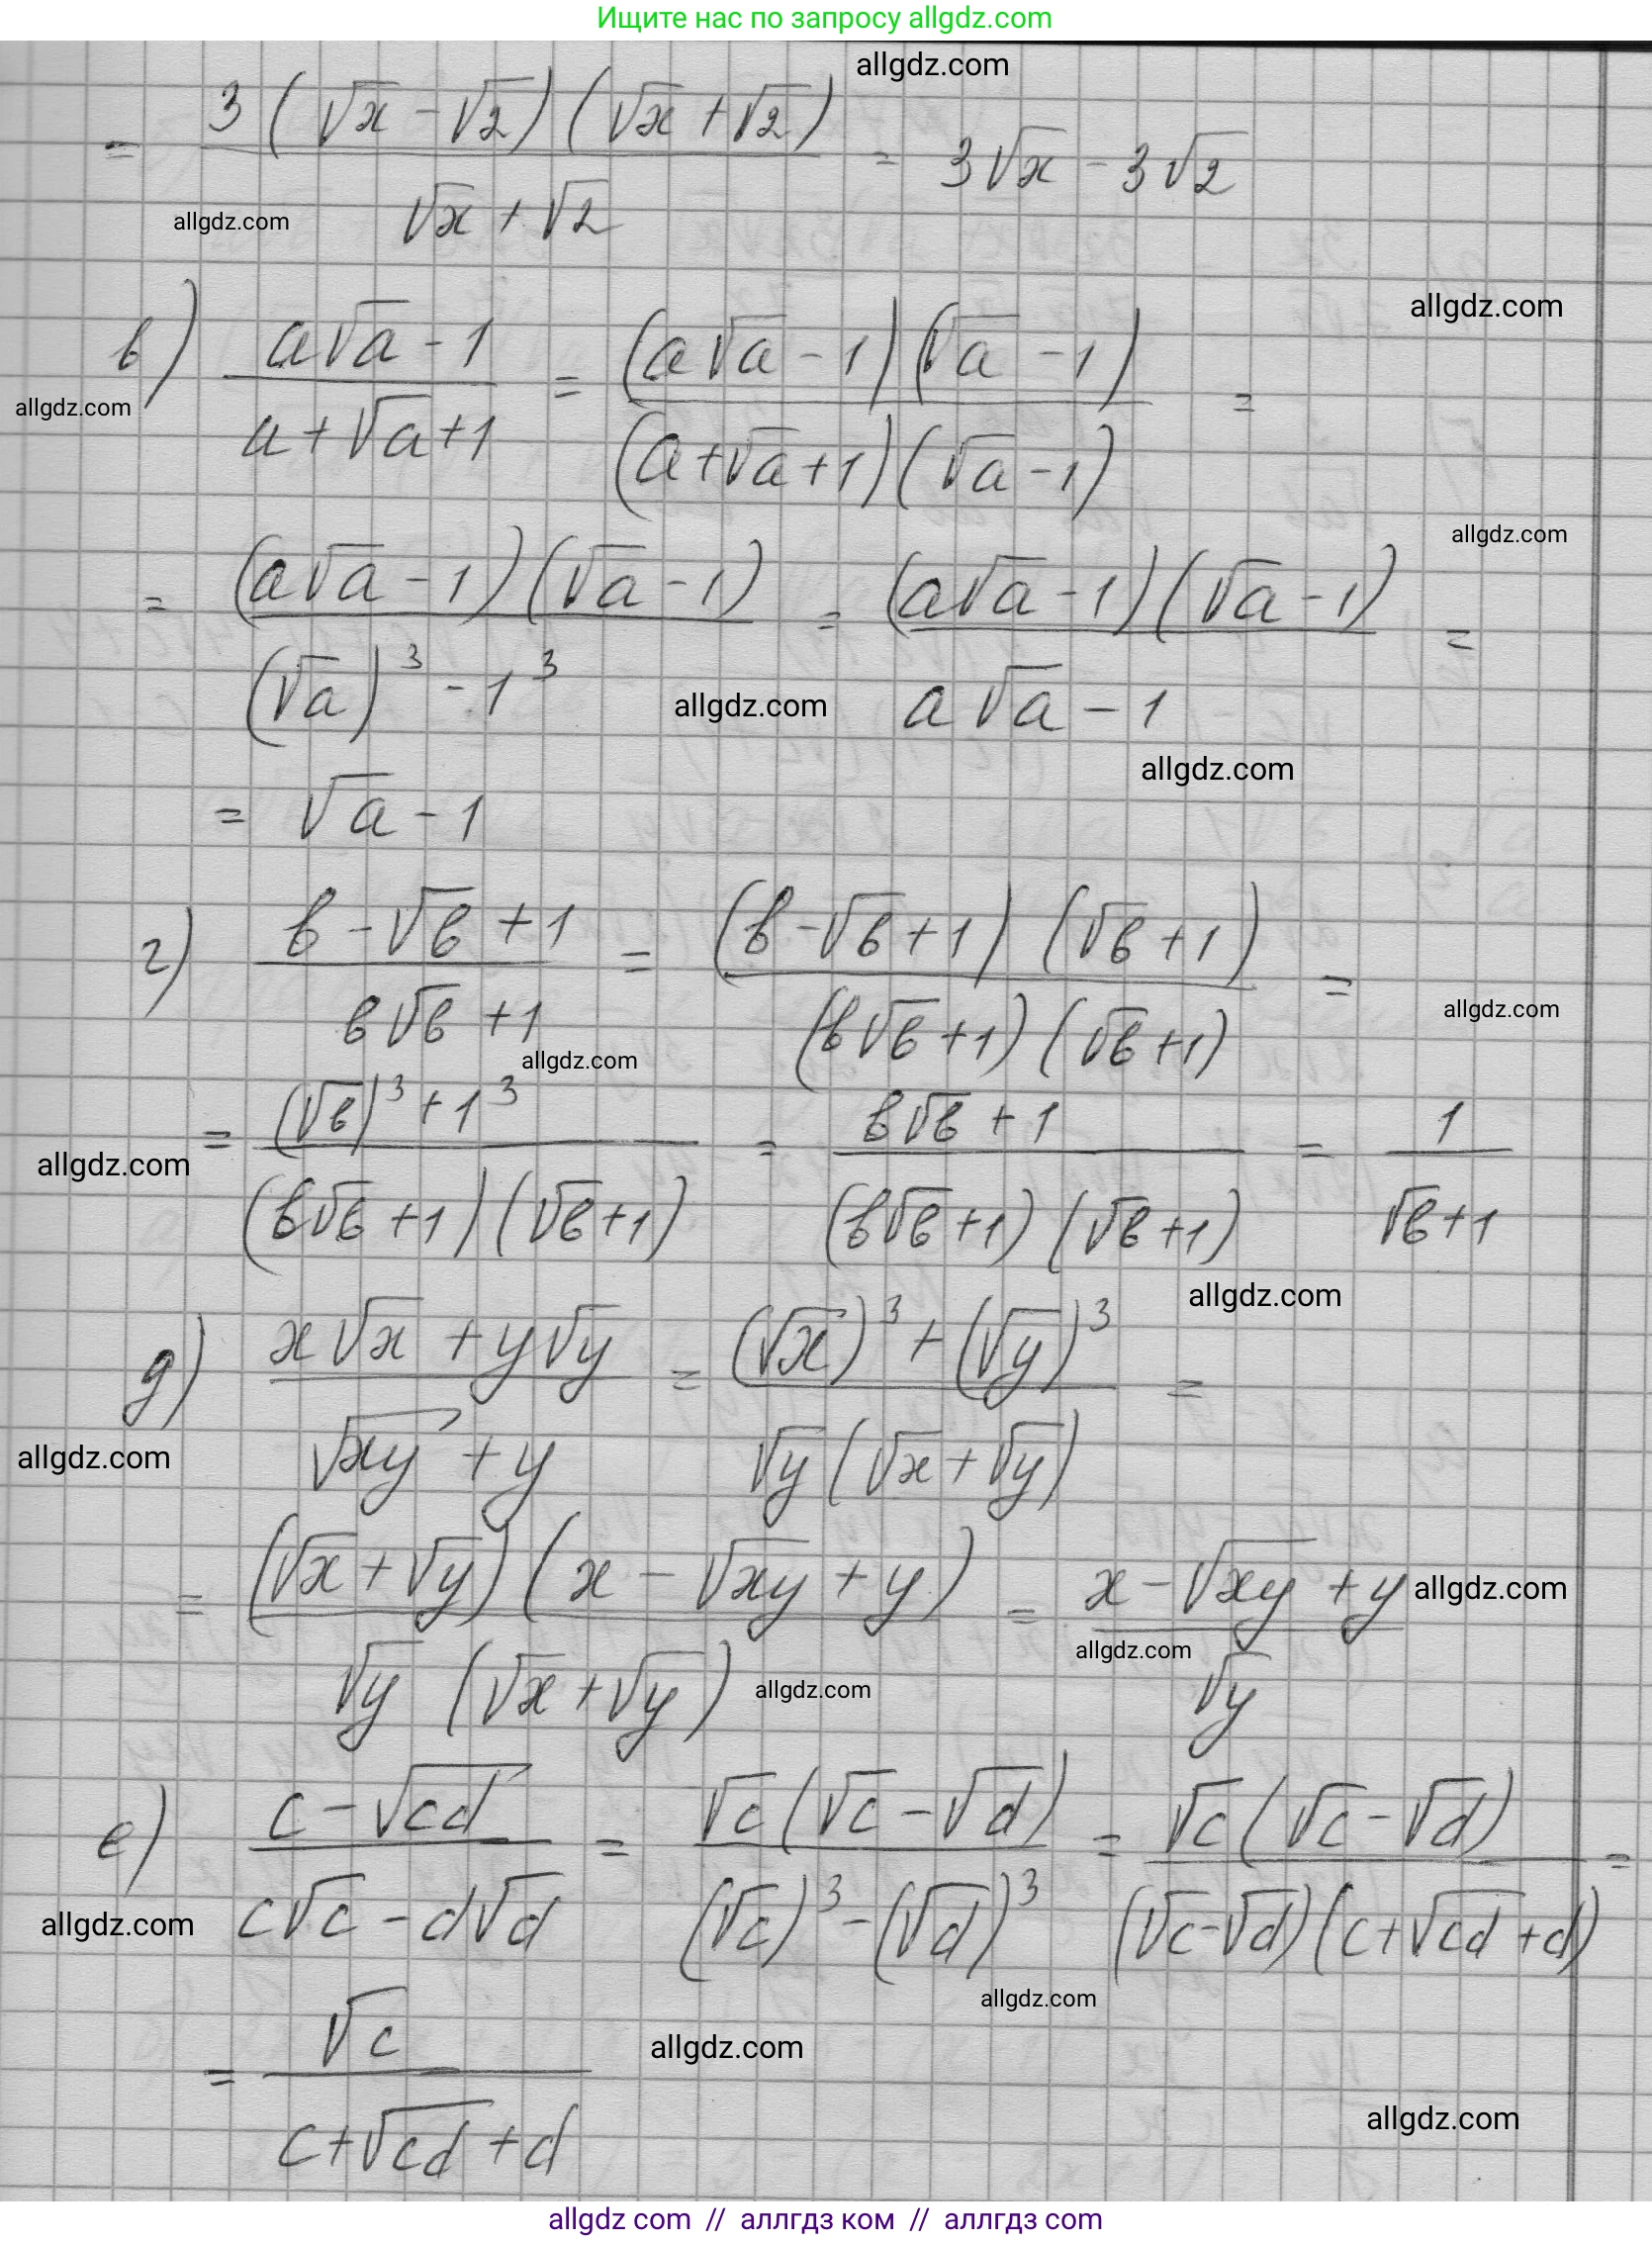 Ищите нас по запросу allgdz.com
allgdz.com
= 3(√x - √2)(√x + √2) / (√x + √2) = 3√x - 3√2
allgdz.com
allgdz.com
в) (a√a - 1) / (a + √a + 1) = (a√a - 1)(√a - 1) / (a + √a + 1)(√a - 1) =
allgdz.com
allgdz.com
= (a√a - 1)(√a - 1) / ((√a)³ - 1³) = (a√a - 1)(√a - 1) / (a√a - 1) =
allgdz.com
allgdz.com
= √a - 1
г) (в - √в + 1) / (в√в + 1) = (в - √в + 1)(√в + 1) / (в√в + 1)(√в + 1) =
allgdz.com
allgdz.com
= ((√в)³ + 1³) / (в√в + 1)(√в + 1) = (в√в + 1) / (в√в + 1)(√в + 1) = 1 / (√в + 1)
allgdz.com
allgdz.com
д) (x√x + y√y) / (√xy + y) = ((√x)³ + (√y)³) / √y(√x + √y) =
allgdz.com
= (√x + √y)(x - √xy + y) / √y(√x + √y) = (x - √xy + y) / √y
allgdz.com
allgdz.com
allgdz.com
е) (c - √cd) / (c√c - d√d) = √c(√c - √d) / ((√c)³ - (√d)³) = √c(√c - √d) / (√c - √d)(c + √cd + d) =
allgdz.com
allgdz.com
= √c / (c + √cd + d)
allgdz.com
allgdz.com
allgdz com // аллгдз ком // аллгдз com